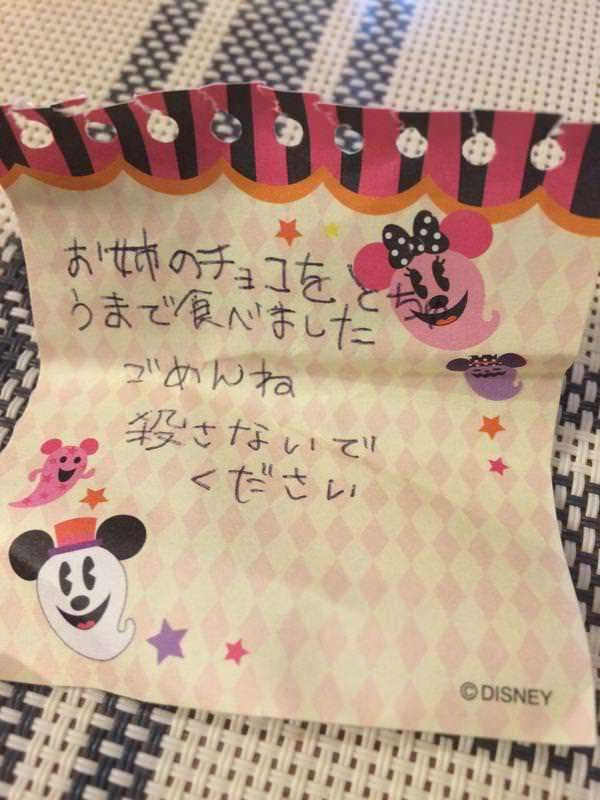 お姉のチョコをとち
うまで食べました
ごめんね
殺さないで
ください
©DISNEY